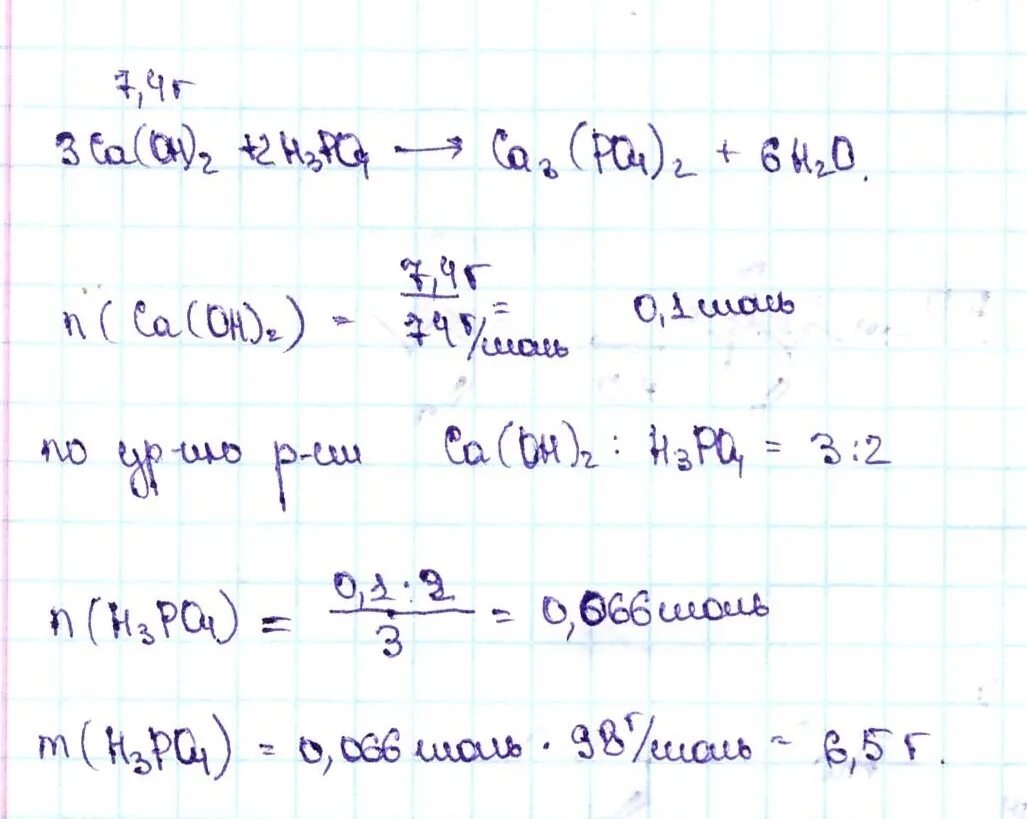 7,4г
3Ca(OH)₂ + 2H₃PO₄ → Ca₃(PO₄)₂ + 6H₂O.
n(Ca(OH)₂) = 7,4г / 74г/моль = 0,1 моль
по ур-ию р-ии Ca(OH)₂ : H₃PO₄ = 3:2
n(H₃PO₄) = 0,1:2 / 3 = 0,066 моль
m(H₃PO₄) = 0,066 моль · 98г/моль = 6,5 г.